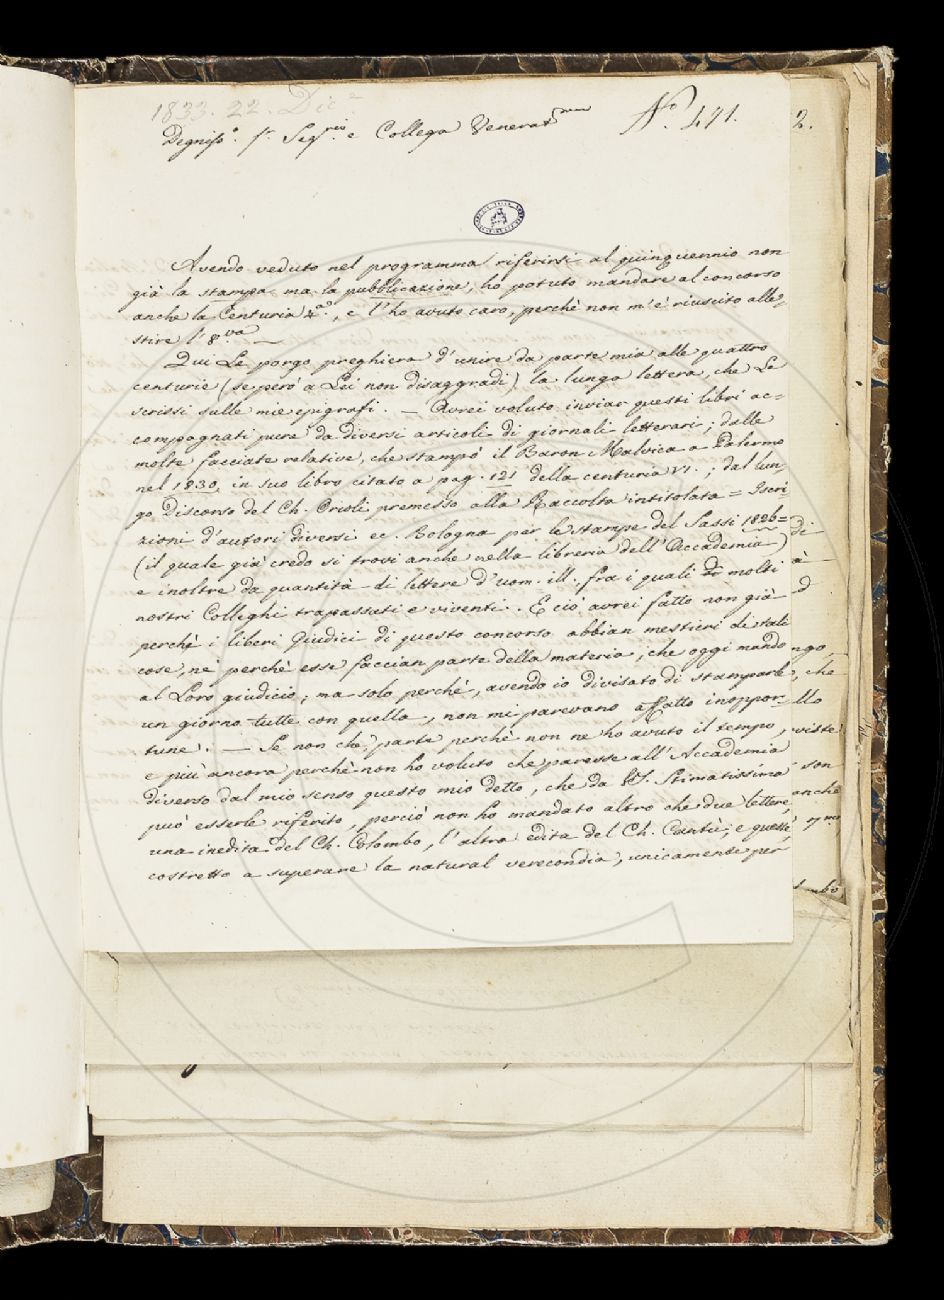 1833. 22. Dic.e
N.o 471.
2.
Degnis.o S.r Seg.rio e Collega Venerat.mo
Avendo veduto nel programma riferirsi al quinquennio non
già la stampa ma la pubblicazione, ho potuto mandare al concorso
anche la Centuria 4.a, e l'ho avuto caro, perchè non m'è riuscito alle=
stire l'8.va
Qui Le porgo preghiera d'unire da parte mia alle quattro
centurie (se però a Lei non disaggradi) la lunga lettera, che Le
scrissi sulle mie epigrafi. — Avrei voluto inviar questi libri ac=
compagnati pure da diversi articoli di giornali letterari; dalle
molte facciate relative, che stampò il Baron Malvica a Palermo
nel 1830, in suo libro citato a pag. 121 della centuria VI.; dal lun=
go Discorso del Ch. Orioli premesso alla Raccolta intitolata = Iscri
zioni d'autori diversi ec. Bologna per le stampe del Sassi 1826 =
(il quale già credo si trovi anche nella libreria dell'Accademia)
e inoltre da quantità di lettere d'uom. ill. fra i quali di molti
nostri Colleghi trapassati e viventi. E ciò avrei fatto non già
perchè i liberi Giudici di questo concorso abbian mestieri di tali
cose, nè perchè esse faccian parte della materia, che oggi mando
al Loro giudicio; ma solo perchè, avendo io divisato di stamparle
un giorno tutte con quella, non mi parevano affatto inoppor=
tune. — Se non che parte perchè non ne ho avuto il tempo,
e più ancora perchè non ho voluto che paresse all'Accademia
diverso dal mio senso questo mio detto, che da V.S. Stimatissima
può esserle riferito, perciò non ho mandato altro che due lettere,
una inedita del Ch. Colombo, l'altra edita del Ch. Cantù; e queste,
costretto a superare la natural verecondia, unicamente per
di
à
d
ngo,
che
llo
viste
son
anche